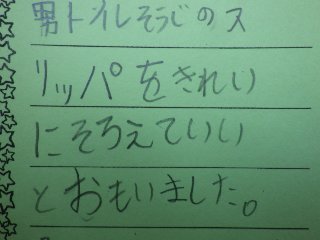 男トイレそうじのス
リッパをきれい
にそろえていい
とおもいました。